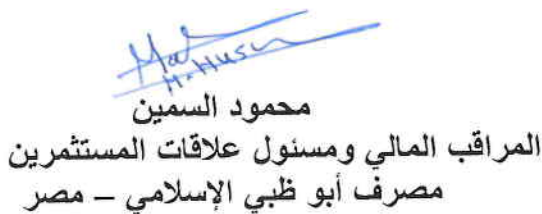 محمود السمين
المراقب المالي ومسئول علاقات المستثمرين
مصرف أبو ظبي الإسلامي – مصر